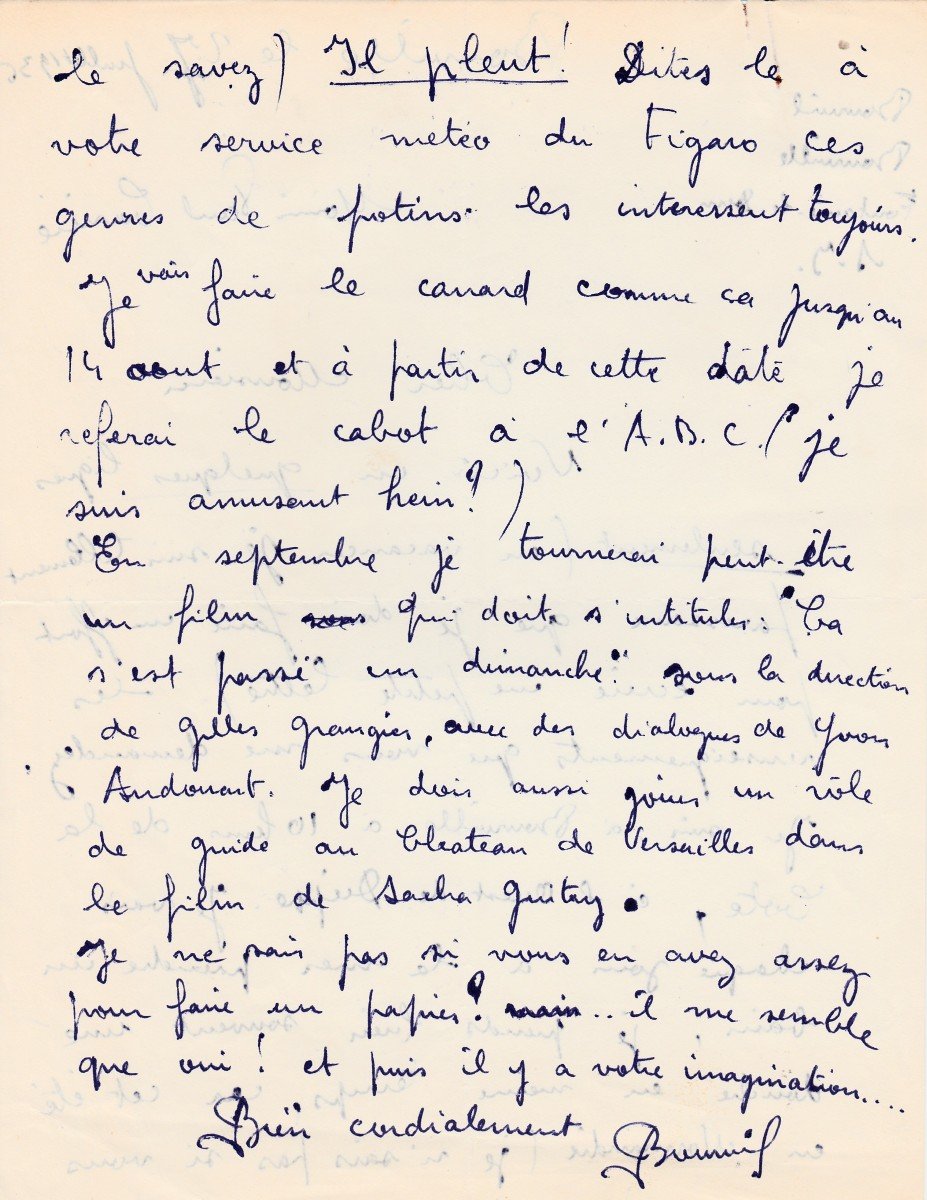 le savez) Il pleut! Dites le à
votre service météo du Figaro ces
genres de "potins" les interessent toujours.
Je vais faire le canard comme ca jusqu'au
14 aout et à partir de cette date je
referai le cabot à l'A.B.C. (je
suis amusant hein?)
En septembre je tournerai peut-être
un film qui doit s'intituler: "Ca
s'est passé un dimanche" sous la direction
de Gilles Grangier, avec des dialogues de Yvon
Audouart. Je dois aussi jouer un rôle
de guide au Chateau de Versailles dans
le film de Sacha Guitry.
Je ne sais pas si vous en avez assez
pour faire un papier? mais.. il me semble
que oui! et puis il y a votre imagination....
Bien cordialement
Bourvil